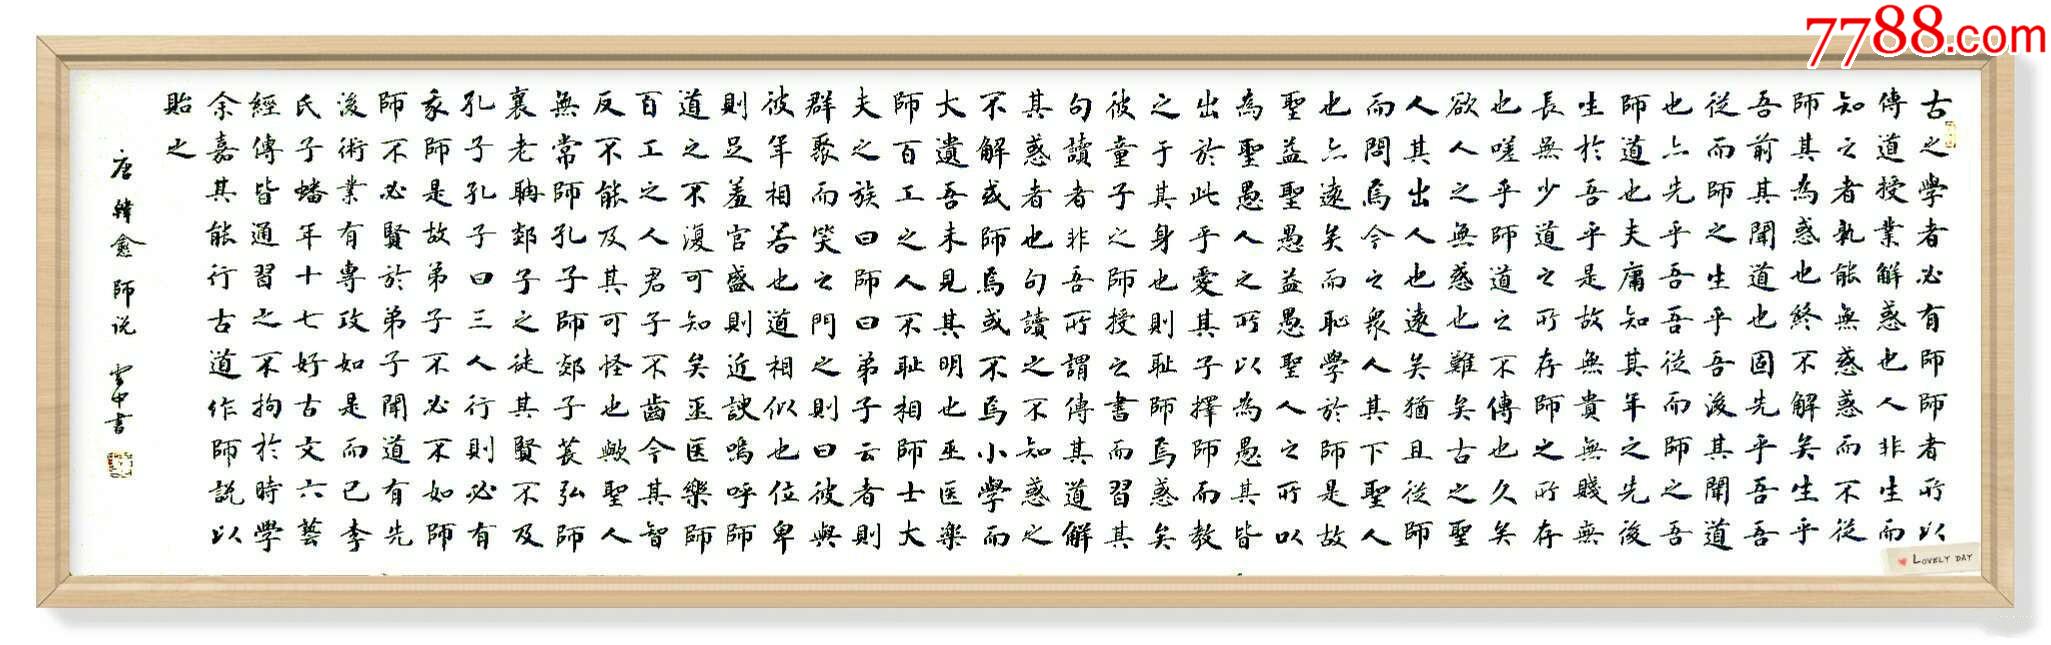 7788.com
古之學者必有師師者所以
傳道授業解惑也人非生而
知之者孰能無惑惑而不從
師其為惑也終不解矣生乎
吾前其聞道也固先乎吾吾
從而師之生乎吾後其聞道
也亦先乎吾吾從而師之吾
師道也夫庸知其年之先後
生於吾乎是故無貴無賤無
長無少道之所存師之所存
也嗟乎師道之不傳也久矣
欲人之無惑也難矣古之聖
人其出人也遠矣猶且從師
而問焉今之眾人其下聖人
也亦遠矣而耻學於師是故
聖益聖愚益愚聖人之所以
為聖愚人之所以為愚其皆
出於此乎愛其子擇師而教
之于其身也則耻師焉惑矣
彼童子之師授之書而習其
句讀者非吾所謂傳其道解
其惑者也句讀之不知惑之
不解或師焉或不焉小學而
大遺吾未見其明也巫医樂
師百工之人不耻相師士大
夫之族曰師曰弟子云者則
群聚而笑之門之則曰彼與
彼年相若也道相似也位卑
則足羞官盛則近諛嗚呼師
道之不復可知矣巫医樂師
百工之人君子不齒今其智
反不能及其可怪也歟聖人
無常師孔子師郯子萇弘師
襄老聃郯子之徒其賢不及
孔子孔子曰三人行則必有
我師是故弟子不必不如師
師不必賢於弟子聞道有先
後術業有專攻如是而已李
氏子蟠年十七好古文六藝
經傳皆通習之不拘於時學
余嘉其能行古道作師說以
貽之
唐韓愈師说 雪中書
LOVELY DAY